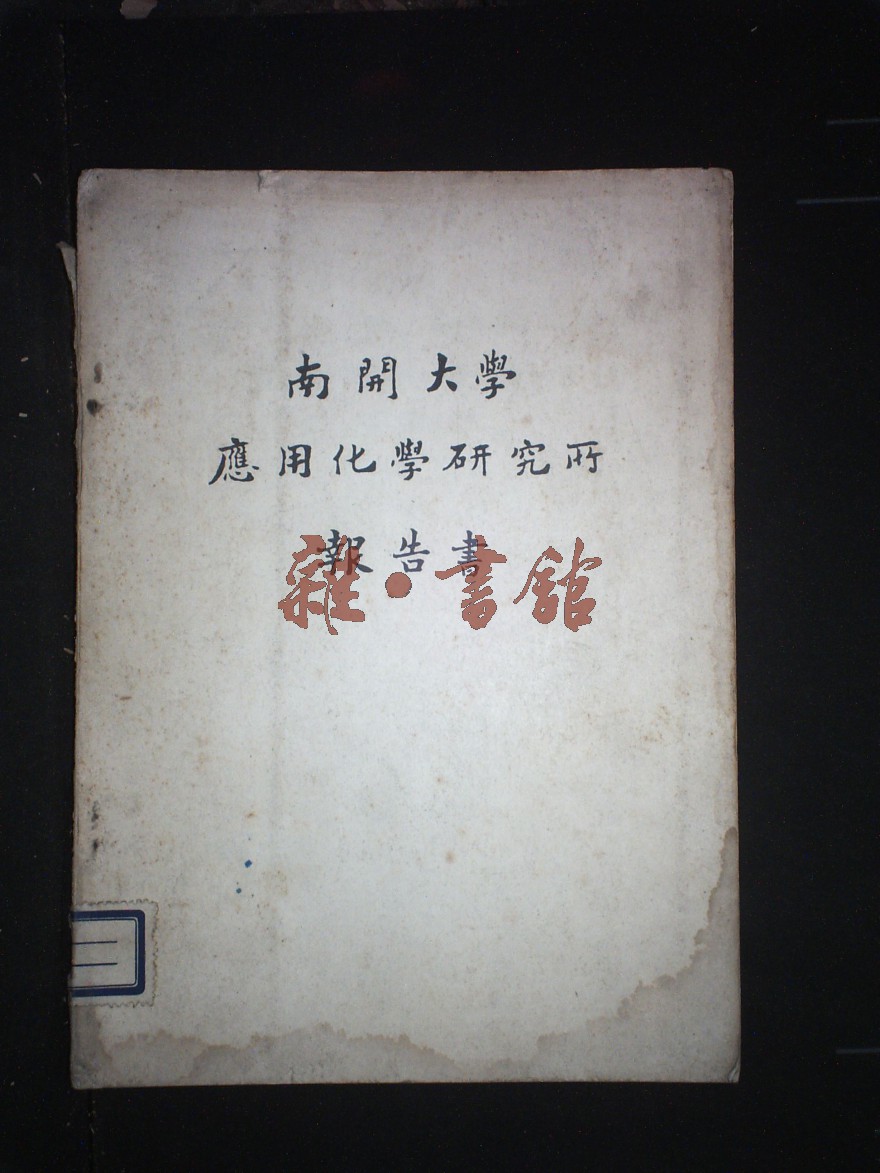 南開大學
應用化學研究所
報告書
雜·書館